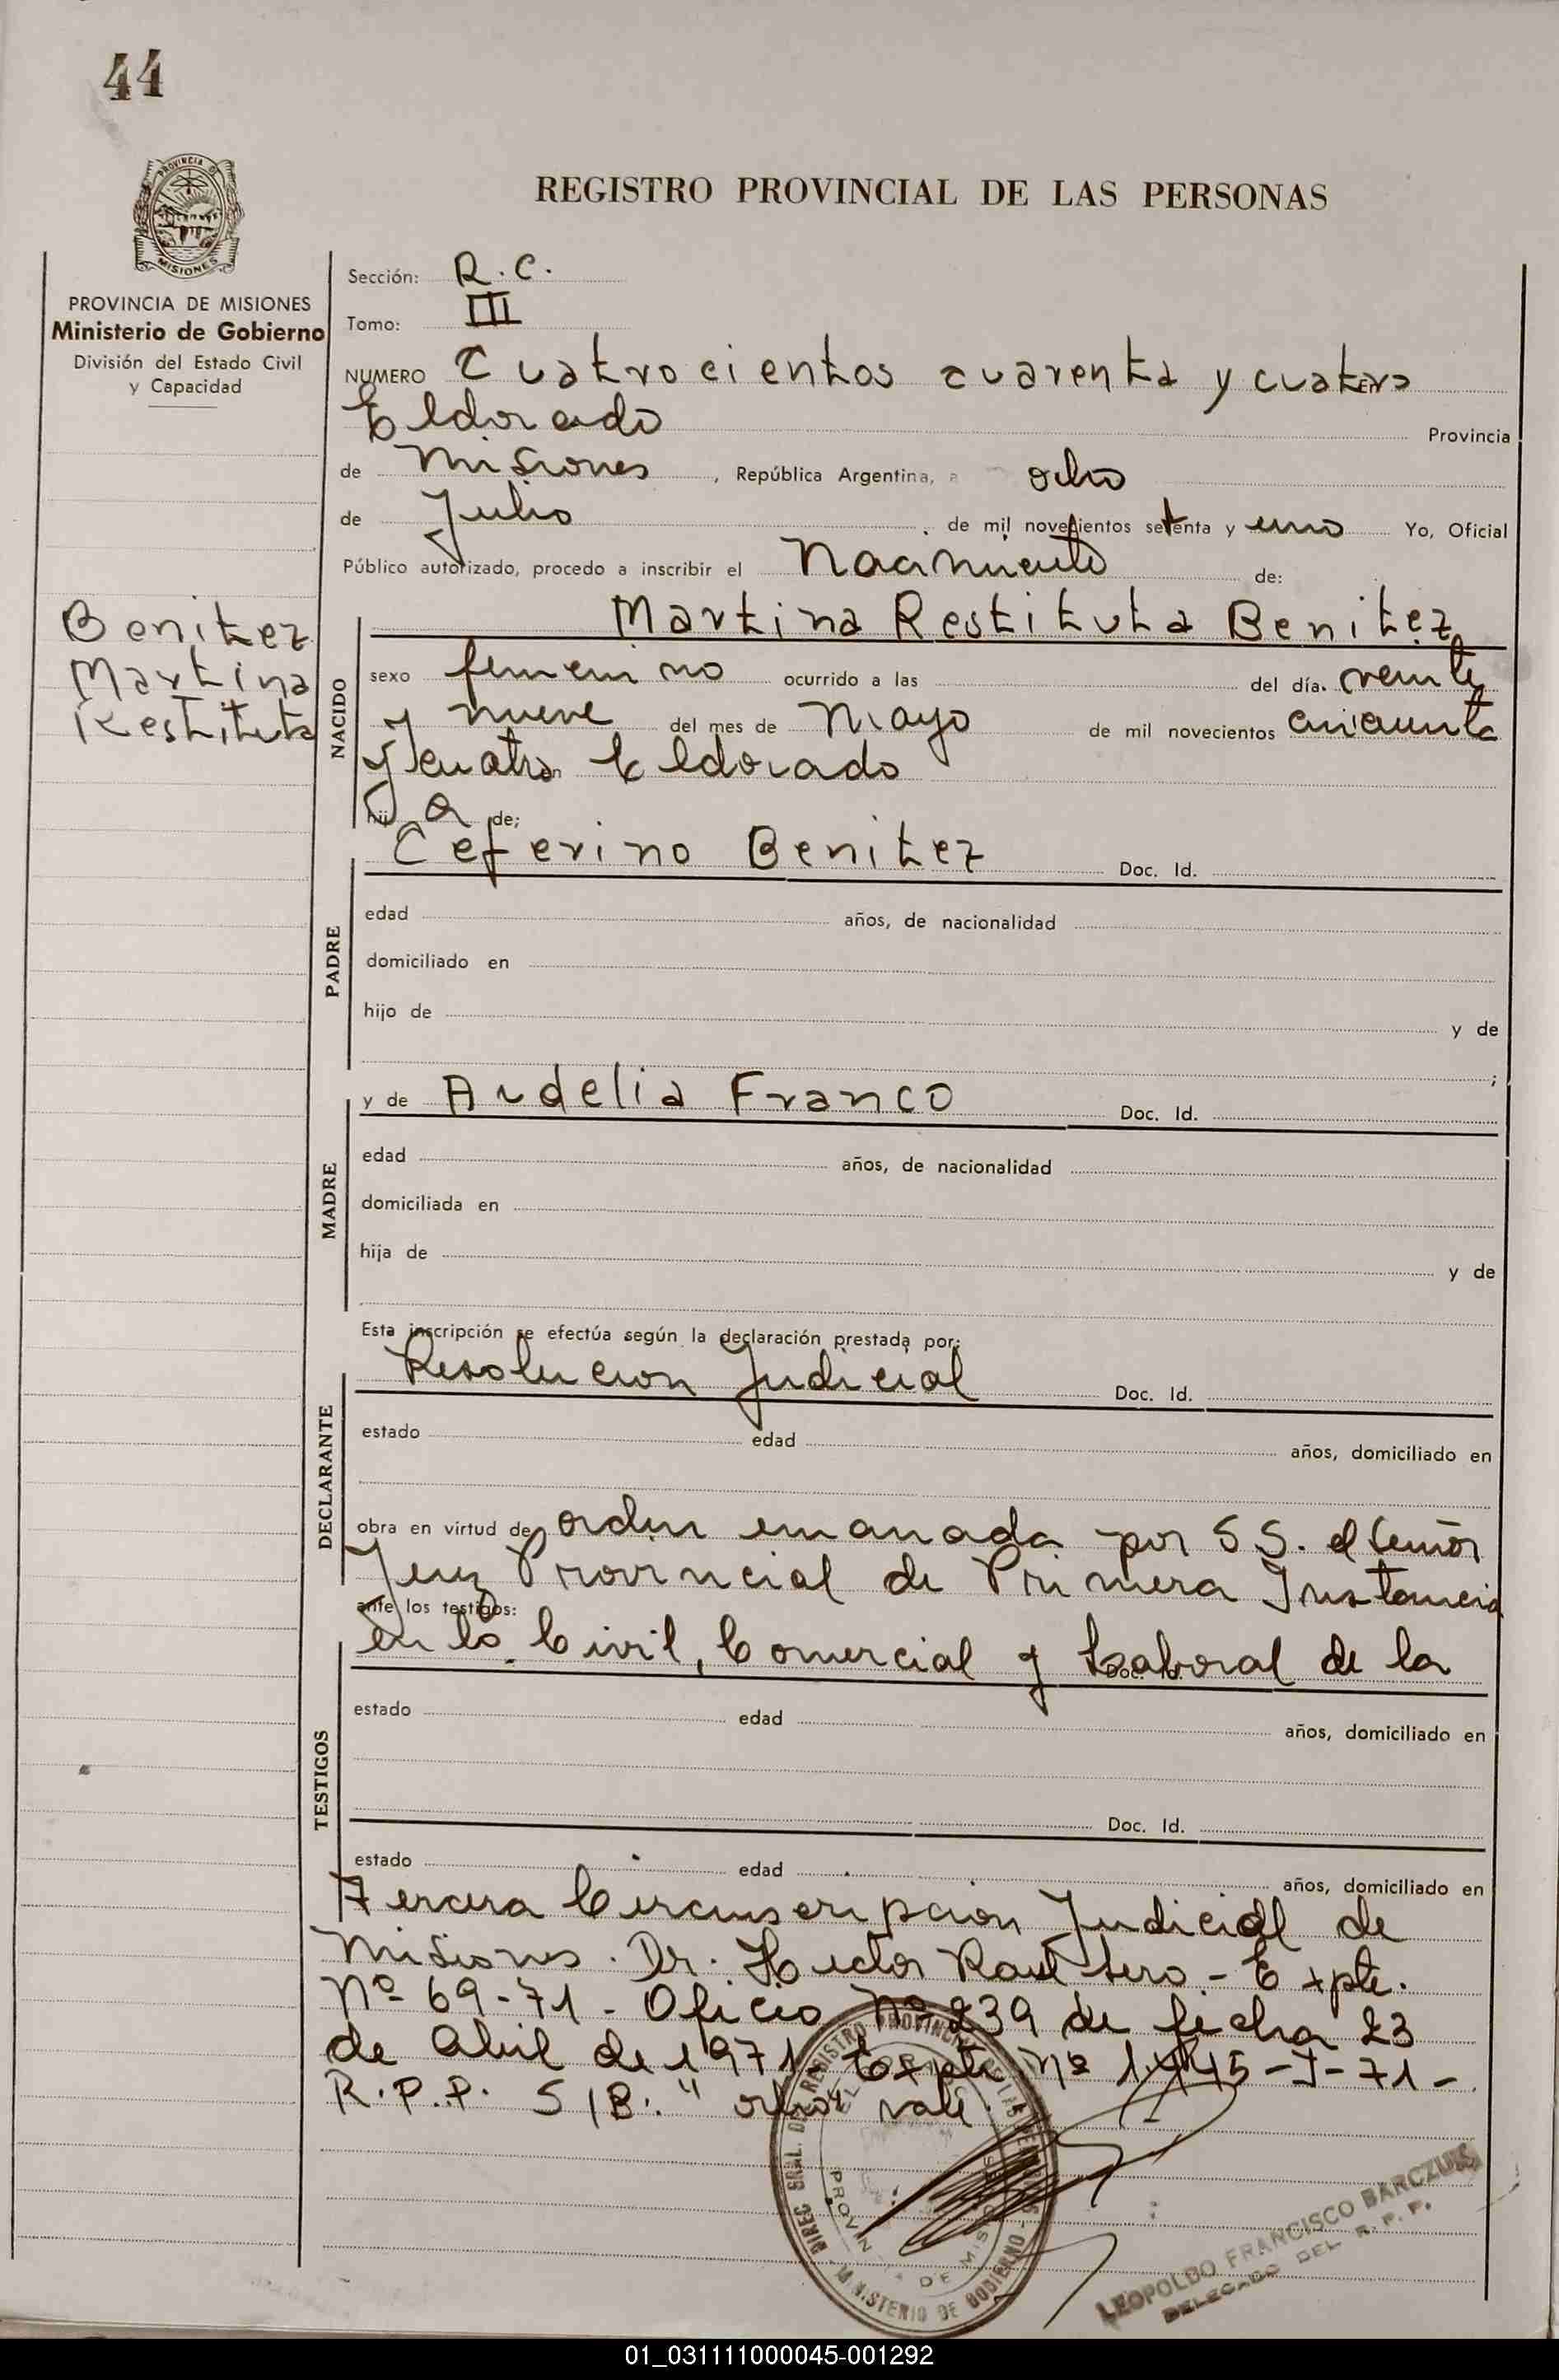 44
PROVINCIA DE
MISIONES
REGISTRO PROVINCIAL DE LAS PERSONAS
PROVINCIA DE MISIONES
Ministerio de Gobierno
División del Estado Civil
y Capacidad
Sección: R.C.
Tomo: III
NUMERO Cuatrocientos cuarenta y cuatro
Eldorado Provincia
de Misiones, República Argentina, a ocho
de Julio de mil novecientos setenta y uno Yo, Oficial
Público autorizado, procedo a inscribir el Nacimiento de:
Benitez
Martina
Restituta
NACIDO
Martina Restituta Benitez
sexo femenino ocurrido a las del día veinte
y nueve del mes de Mayo de mil novecientos cincuenta
y cuatro en Eldorado
hij a de;
PADRE
Ceferino Benitez Doc. Id.
edad años, de nacionalidad
domiciliado en
hijo de y de
;
MADRE
y de Ardelia Franco Doc. Id.
edad años, de nacionalidad
domiciliada en
hija de y de
Esta inscripción se efectúa según la declaración prestada por:
DECLARANTE
Resolucion Judicial Doc. Id.
estado edad años, domiciliado en
obra en virtud de orden emanada por S S. el Señor
Juez Provincial de Primera Instancia
ante los testigos:
en lo Civil, Comercial y Laboral de la
TESTIGOS
estado edad años, domiciliado en
Doc. Id.
estado edad años, domiciliado en
Tercera Circunscripcion Judicial de
Misiones. Dr. Hector Raul - Expte.
Nº 69-71 - Oficio Nº 239 de fecha 23
de Abril de 1971 - Expte Nº 1445-J-71-
R.P.P. S/B: "ocho" vale.
DIREC. GRAL. DEL REGISTRO PROVINCIAL DE LAS PERSONAS
MINISTERIO DE GOBIERNO
PROVINCIA DE MISIONES
LEOPOLDO FRANCISCO BARCZUK
DELEGADO DEL R. P. P.
01_031111000045-001292